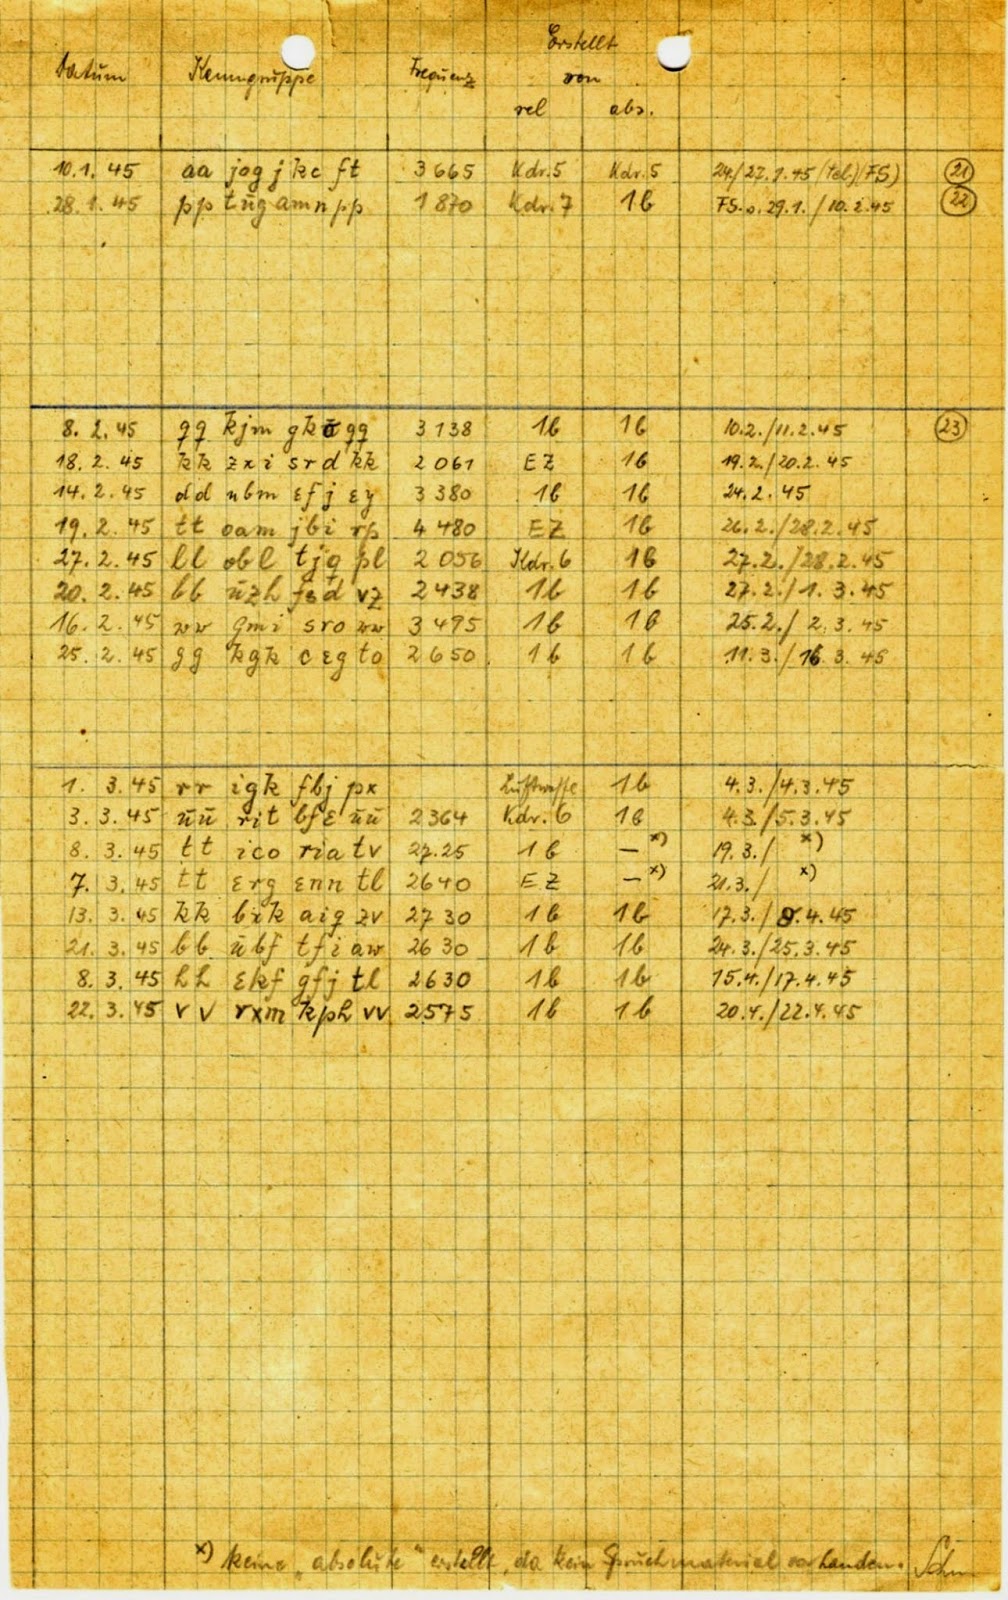 Erstellt
Datum Kenngruppe Frequenz von
rel abs.
10.1.45 aa jog jkc ft 3665 Kdr.5 Kdr.5 24./27.1.45 (Tel.)(FS) 21
28.1.45 pp tüg amn pp 1870 Kdr.7 1b FS. v. 29.1./10.2.45 22
8.2.45 qq kjm gkö qq 3138 1b 1b 10.2./11.2.45 23
18.2.45 kk zxi srd kk 2061 EZ 1b 19.2./20.2.45
14.2.45 dd nbm εfj εy 3380 1b 1b 24.2.45
19.2.45 tt oam jbi rp 4480 EZ 1b 26.2./28.2.45
27.2.45 ll obl tjq pl 2056 Kdr.6 1b 27.2./28.2.45
20.2.45 bb üzh fsd vz 2438 1b 1b 27.2./1.3.45
16.2.45 ww qmi sro ww 3495 1b 1b 25.2./2.3.45
25.2.45 gg kgk cεg to 2650 1b 1b 11.3./16.3.45
1.3.45 rr igk fbj px Luftwaffe 1b 4.3./4.3.45
3.3.45 üü rit bfε üü 2364 Kdr.6 1b 4.3./5.3.45
8.3.45 tt ico ria tv 27.25 1b — x) 19.3./ x)
7.3.45 tt εrg εnn tl 2640 EZ — x) 21.3./ x)
13.3.45 kk bik aiq zv 2730 1b 1b 17.3./8.4.45
21.3.45 bb übf tfi aw 2630 1b 1b 24.3./25.3.45
8.3.45 hh εkf gfj tl 2630 1b 1b 15.4./17.4.45
22.3.45 vv rxm kph vv 2575 1b 1b 20.4./22.4.45
x) keine „absolute" erstellt, da kein Spruchmaterial vorhanden.